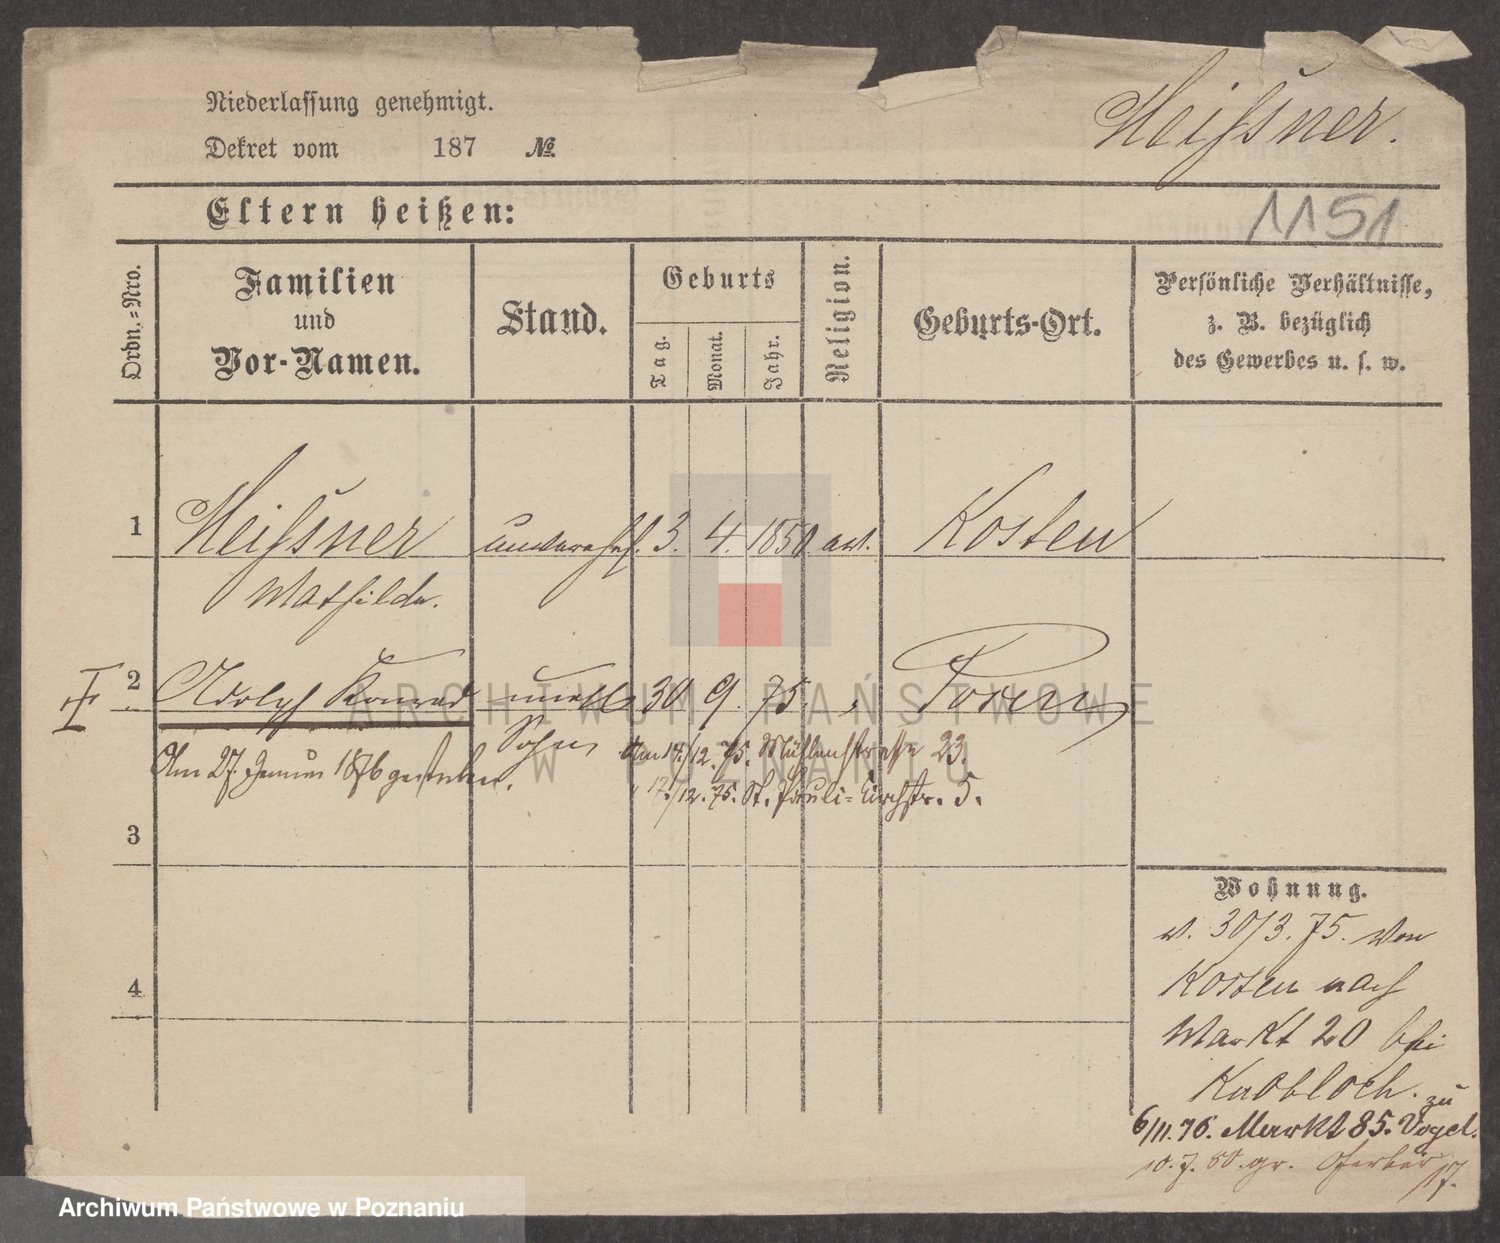 Niederlassung genehmigt.
Meißner.
Dekret vom 187 №
Eltern heißen:
1151
Ordn.-Nro.
Familien
und
Vor-Namen.
Stand.
Geburts
Tag.
Monat.
Jahr.
Religion.
Geburts-Ort.
Persönliche Verhältnisse,
z. B. bezüglich
des Gewerbes u. s. w.
1 Meißner unverehel. 3. 4. 1850 Kosten
Mathilde.
2 Adolph Konrad unehl. 30 9. 75. Posen
Sohn
Am 27. Januar 1876 gestorben.
Am 14./12. 75. Mühlenstraße 23.
" 17./12. 75. St. Pauli-Kirchstr. 5.
3
4
Wohnung.
30/3. 75. von
Kosten nach
Markt 20 bei
Knobloch. zu
6/11. 76. Markt 85. Vogel.
10. 7. 80. gr. Gerberstr 17.
ARCHIWUM PAŃSTWOWE
W POZNANIU
Archiwum Państwowe w Poznaniu